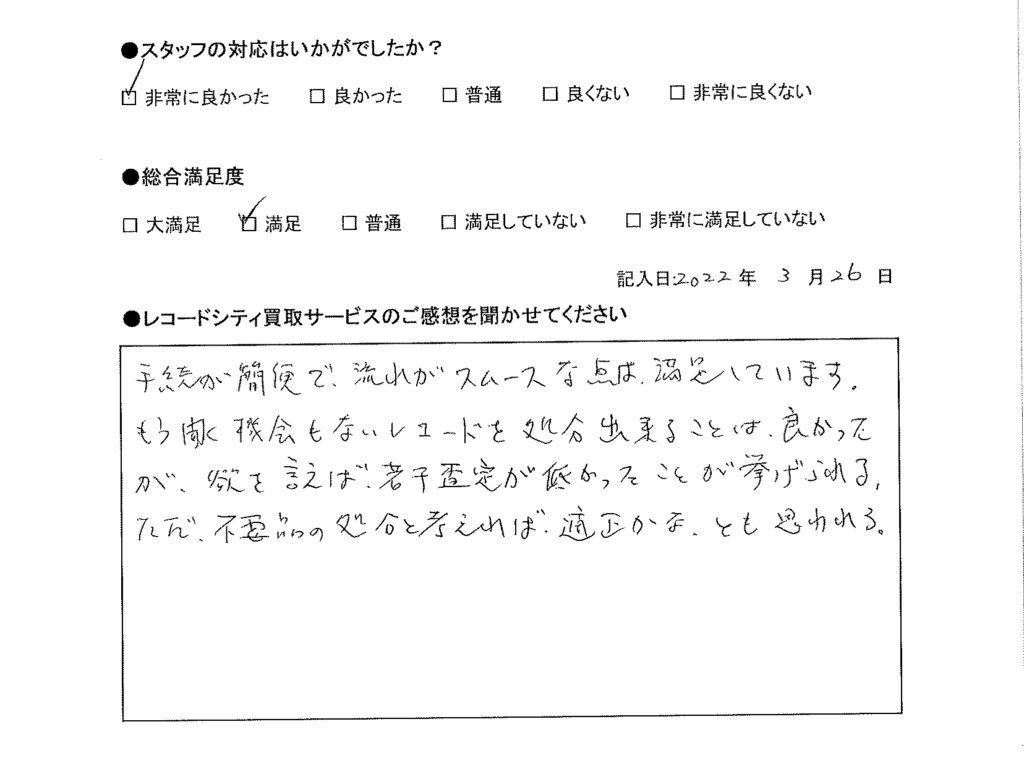 ●スタッフの対応はいかがでしたか？
☑ 非常に良かった □ 良かった □ 普通 □ 良くない □ 非常に良くない
●総合満足度
□ 大満足 ☑ 満足 □ 普通 □ 満足していない □ 非常に満足していない
記入日:2022 年 3 月 26 日
●レコードシティ買取サービスのご感想を聞かせてください
手続が簡便で、流れがスムースな点は、満足しています。
もう聞く機会もないレコードを処分出来ることは、良かった
が、欲を言えば、若干査定が低かったことが挙げられる。
ただ、不要品の処分と考えれば、適正かな、とも思われる。